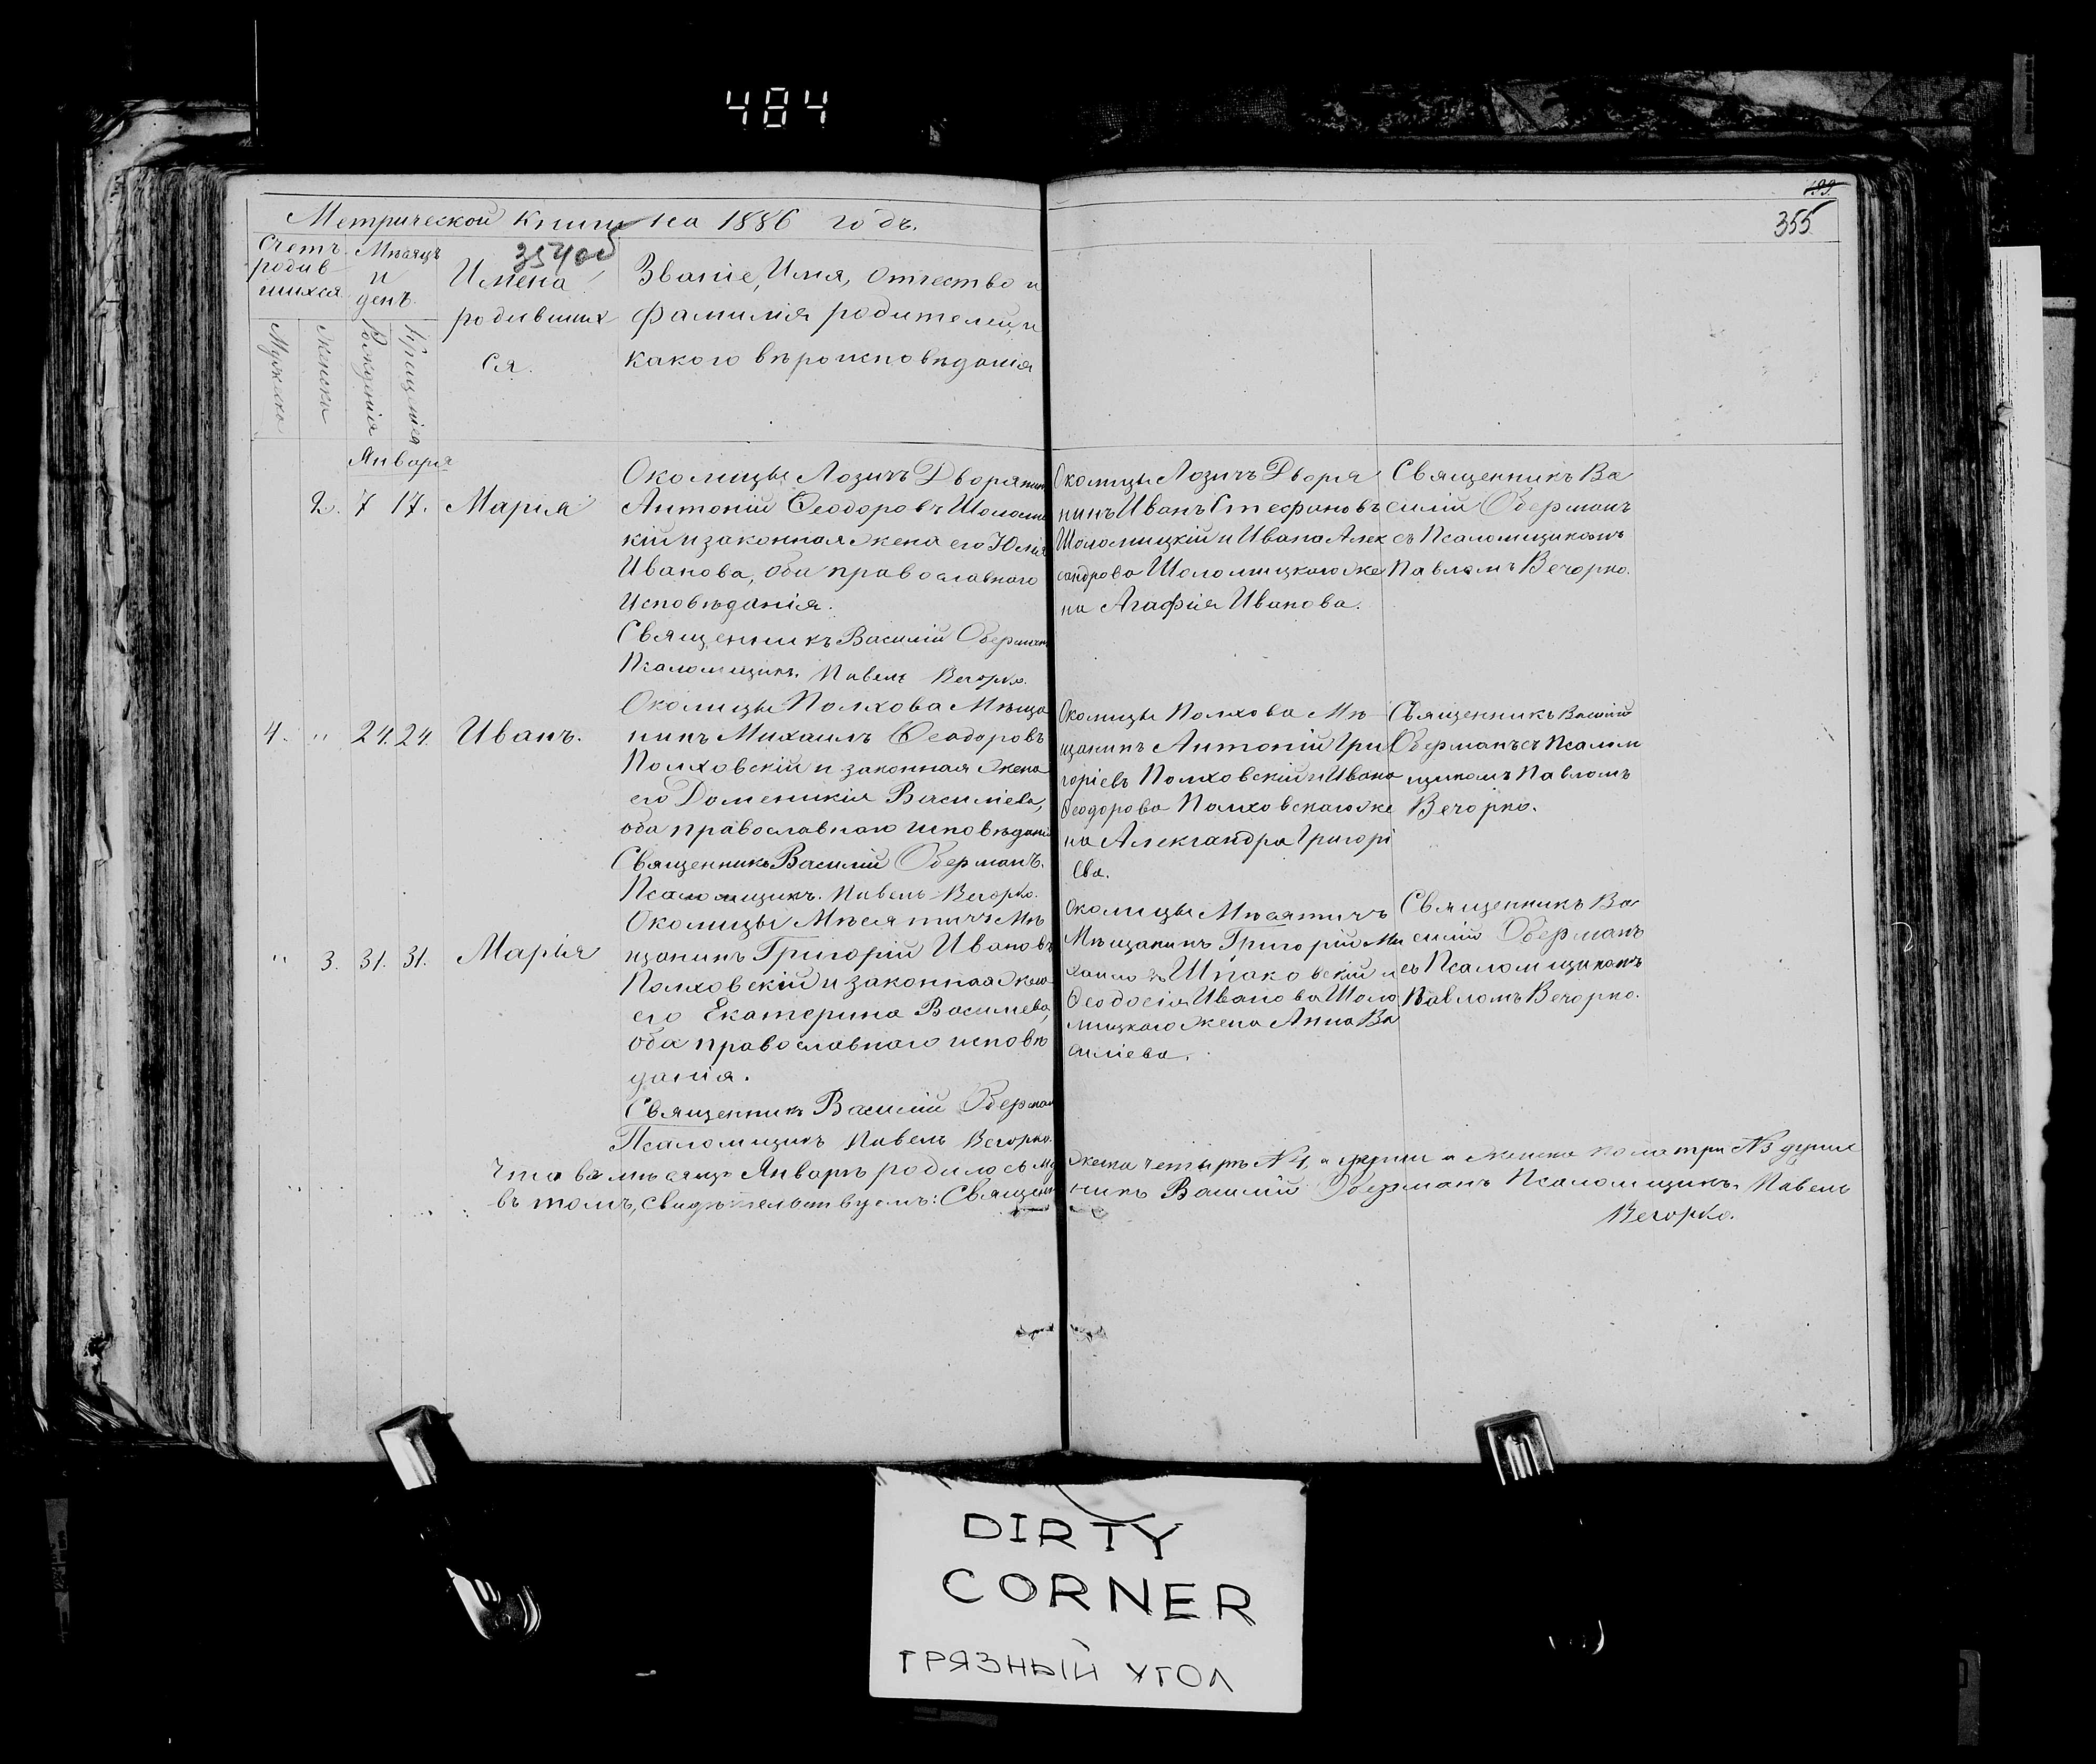 484
199.
355
Метрической книги на 1886 годъ.
354 об
Счетъ родив-
шихся.
Мѣсяцъ
и
день.
Имена
родивших
ся.
Званіе, Имя, Отчество и
фамилія родителей, и
какого вѣроисповѣданія
Мужска
Женска
Рожденія
Крещенія
Января
2. 7 17. Марія
Околицы Лозичъ Дворянинъ
Антоній Ѳеодоровъ Шоломиц
кій и законная жена его Юлія
Иванова, оба православнаго
исповѣданія.
Священникъ Василій Оберманъ
Псаломщикъ Павелъ Вечорко.
Околицы Лозичъ Дворя
нинъ Иванъ Стефановъ
Шоломицкій и Ивана Алек
сандрова Шоломицкаго же
на Агафія Иванова.
Священникъ Ва
силій Оберманъ
съ Псаломщикомъ
Павломъ Вечорко.
4. " 24. 24. Иванъ.
Околицы Полхова Мѣща
нинъ Михаилъ Ѳеодоровъ
Полховскій и законная жена
его Доменикія Васильева,
оба православнаго исповѣданія
Священникъ Василій Оберманъ.
Псаломщикъ. Павелъ Вечорко.
Околицы Полхова Мѣ-
щанинъ Антоній Гри
горіевъ Полховскій и Ивана
Ѳеодорова Полховскаго же
на Александра Григорі
ева.
Священникъ Василій
Оберманъ съ Псалом
щикомъ Павломъ
Вечорко.
" 3. 31. 31. Марія
Околицы Мѣсятичъ Мѣ
щанинъ Григорій Ивановъ
Полховскій и законная жена
его Екатерина Васильева,
оба православнаго исповѣ
данія.
Священникъ Василій Оберман
Псаломщикъ Павелъ Вечорко.
Околицы Мѣсятичъ
Мѣщанинъ Григорій Ми
хаиловъ Шпаковскій и
Ѳеодосія Иванова Шоло
мицкаго жена Анна Ва
силіева.
Священникъ Ва
силій Оберманъ
съ Псаломщикомъ
Павломъ Вечорко.
Что въ мѣсяцѣ Январѣ родилось му жеска четырѣ №4, и женска пола три №3 души
въ томъ, свидѣтельствуемъ: Священ никъ Василій Оберманъ Псаломщикъ. Павелъ
Вечорко.
DIRTY
CORNER
ГРЯЗНЫЙ УГОЛ